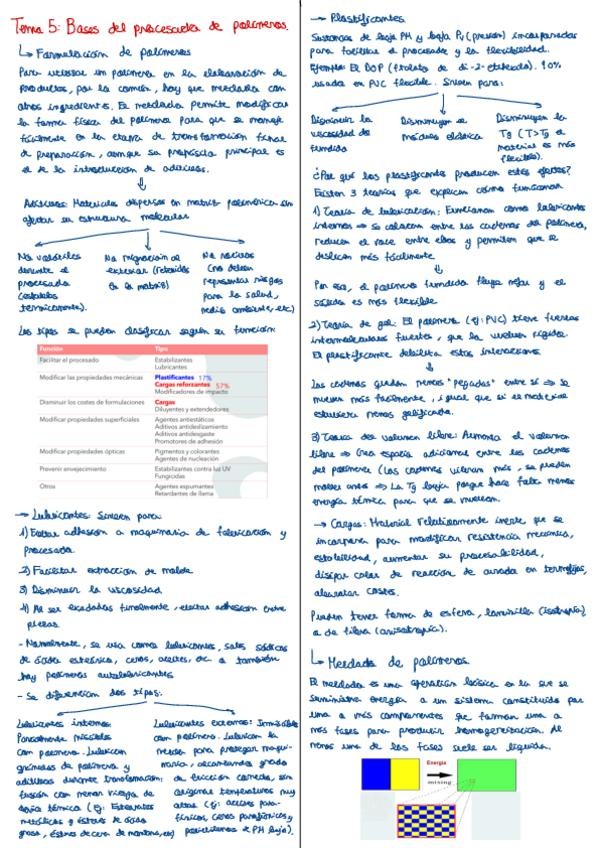 Tema 5: Bases del procesado de polímeros.
↳ Formulación de polímeros
Para utilizar un polímero en la elaboración de
productos, por lo común, hay que mezclarlo con
otros ingredientes. El mezclado permite modificar
la forma física del polímero para que se maneje
fácilmente en la etapa de transformación
de preparación, aunque su propósito principal es
el de la introducción de aditivos.
Aditivos: Materiales dispersos en matriz polimérica sin
afectar su estructura molecular
No volátiles
durante el
procesado
(estables
térmicamente).
No migración al
exterior (retenidos
en la matriz)
No nocivos
(no deben
representar riesgos
para la salud,
medio ambiente, etc)
Los tipos se pueden clasificar según su función:
Función Tipo
Facilitar el procesado Estabilizantes
Lubricantes
Modificar las propiedades mecánicas Plastificantes 17%
Cargas reforzantes 57%
Modificadores de impacto
Disminuir los costes de formulaciones Cargas
Diluyentes y extendedores
Modificar propiedades superficiales Agentes antiestáticos
Aditivos antideslizamiento
Aditivos antidesgaste
Promotores de adhesión
Modificar propiedades ópticas Pigmentos y colorantes
Agentes de nucleación
Prevenir envejecimiento Estabilizantes contra luz UV
Fungicidas
Otros Agentes espumantes
Retardantes de llama
→ Lubricantes: Sirven para:
1) Evitar adhesión a maquinaria de fabricación y
procesado
2) Facilitar extracción de molde
3) Disminuir la viscosidad
4) Al ser exudados evitar adhesión entre
piezas
- Normalmente, se usa como lubricantes, sales sódicas
de ácido esteárico, ceras, aceites, etc a también
hay polímeros autolubricantes
- Se diferencian dos tipos:
Lubricantes internos:
Parcialmente miscibles
con polímero. Lubrican
gránulos de polímero y
aditivos durante transformación:
fusión con menor riesgo de
térmica (ej: Estearatos
metálicos y ésteres de ácido
graso, ésteres de cera de montana, etc)
Lubricantes externos: Inmiscibles
con polímero. Lubrican la
para proteger maqui-
naria, alcanzando grado
de fricción correcto, sin
originar temperaturas muy
altas (ej: aceites para-
fínicos, ceras parafínicas y
polietilenos de PM bajo).
→ Plastificantes
Sustancias de bajo PM y baja Pv (presión) incorporadas
para facilitar el procesado y la flexibilidad.
Ejemplo: El DOP (ftalato de di-2-etilhexilo). 90%
usado en PVC flexible. Sirven para:
Disminuir la
viscosidad de
fundido
Disminuyen el
módulo elástico
Disminuyen la
Tg (T>Tg el
material es más
flexible).
¿Por qué los plastificantes producen estos efectos?
Existen 3 teorías que explican cómo funcionan
1) Teoría de lubricación: Funcionan como lubricantes
internos ⇒ Se colocan entre las cadenas del polímero,
reducen el roce entre ellas y permiten que se
deslicen más fácilmente
Por eso, el polímero fundido fluye mejor y el
sólido es más flexible
2) Teoría de gel: El polímero (ej: PVC) tiene fuerzas
intermoleculares fuertes, que lo vuelven rígido.
El plastificante debilita estas interacciones
Las cadenas quedan menos "pegadas" entre sí ⇒ se
mueven más fácilmente, igual que si el material
estuviera menos gelificado.
3) Teoría del volumen libre: Aumenta el volumen
libre ⇒ Crea espacio adicional entre las cadenas
del polímero (Las cadenas vibran más, se pueden
mover antes ⇒ La Tg baja porque hace falta menos
energía térmica para que se muevan.
→ Cargas: Material relativamente inerte que se
incorpora para modificar resistencia mecánica,
estabilidad, aumentar su procesabilidad,
disipar calor de reacción de curado en termofijos,
abaratar costes.
Pueden tener forma de esfera, laminilla (isotropía)
o de fibra (anisotropía).
↳ Mezclado de polímeros
El mezclado es una operación básica en la que se
suministra energía a un sistema constituido por
uno o más componentes que forman una o
más fases para producir homogeneización. Al
menos una de las fases suele ser líquida.
Energía
mixing